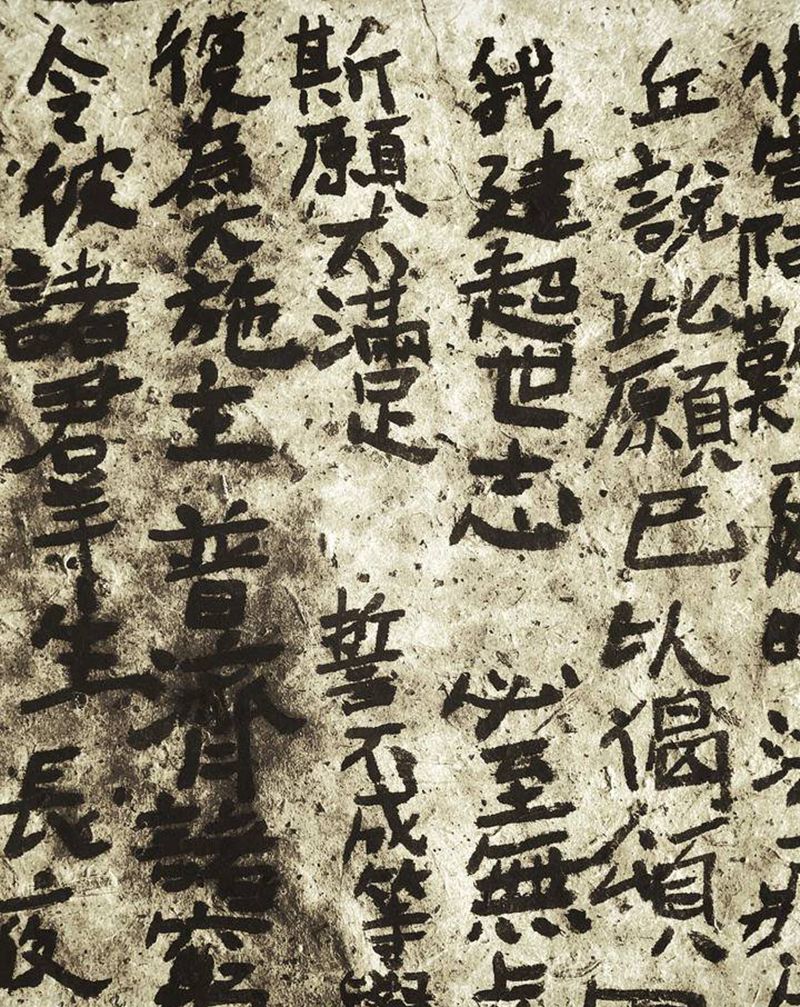 佛告阿難爾時法
丘說此願已以偈頌
我建超世志 必至無上
斯願不滿足 誓不成等覺
復為大施主 普濟諸窮
令彼諸羣生 長夜